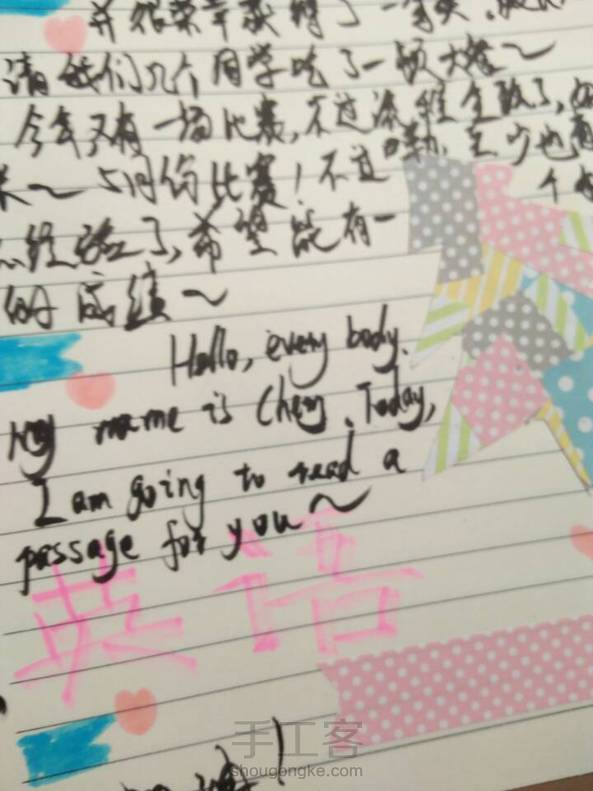 并很荣幸获得了一等奖,
请我们几个同学吃了一顿大餐～
今年又有一场比赛,不过流程全改了,
来～5月份比赛!不过 至少也有
经验了,希望能有一个好
的成绩～
Hello, every body.
My name is Chen. Today,
I am going to read a
passage for you～
英语
手工客
shougongke.com